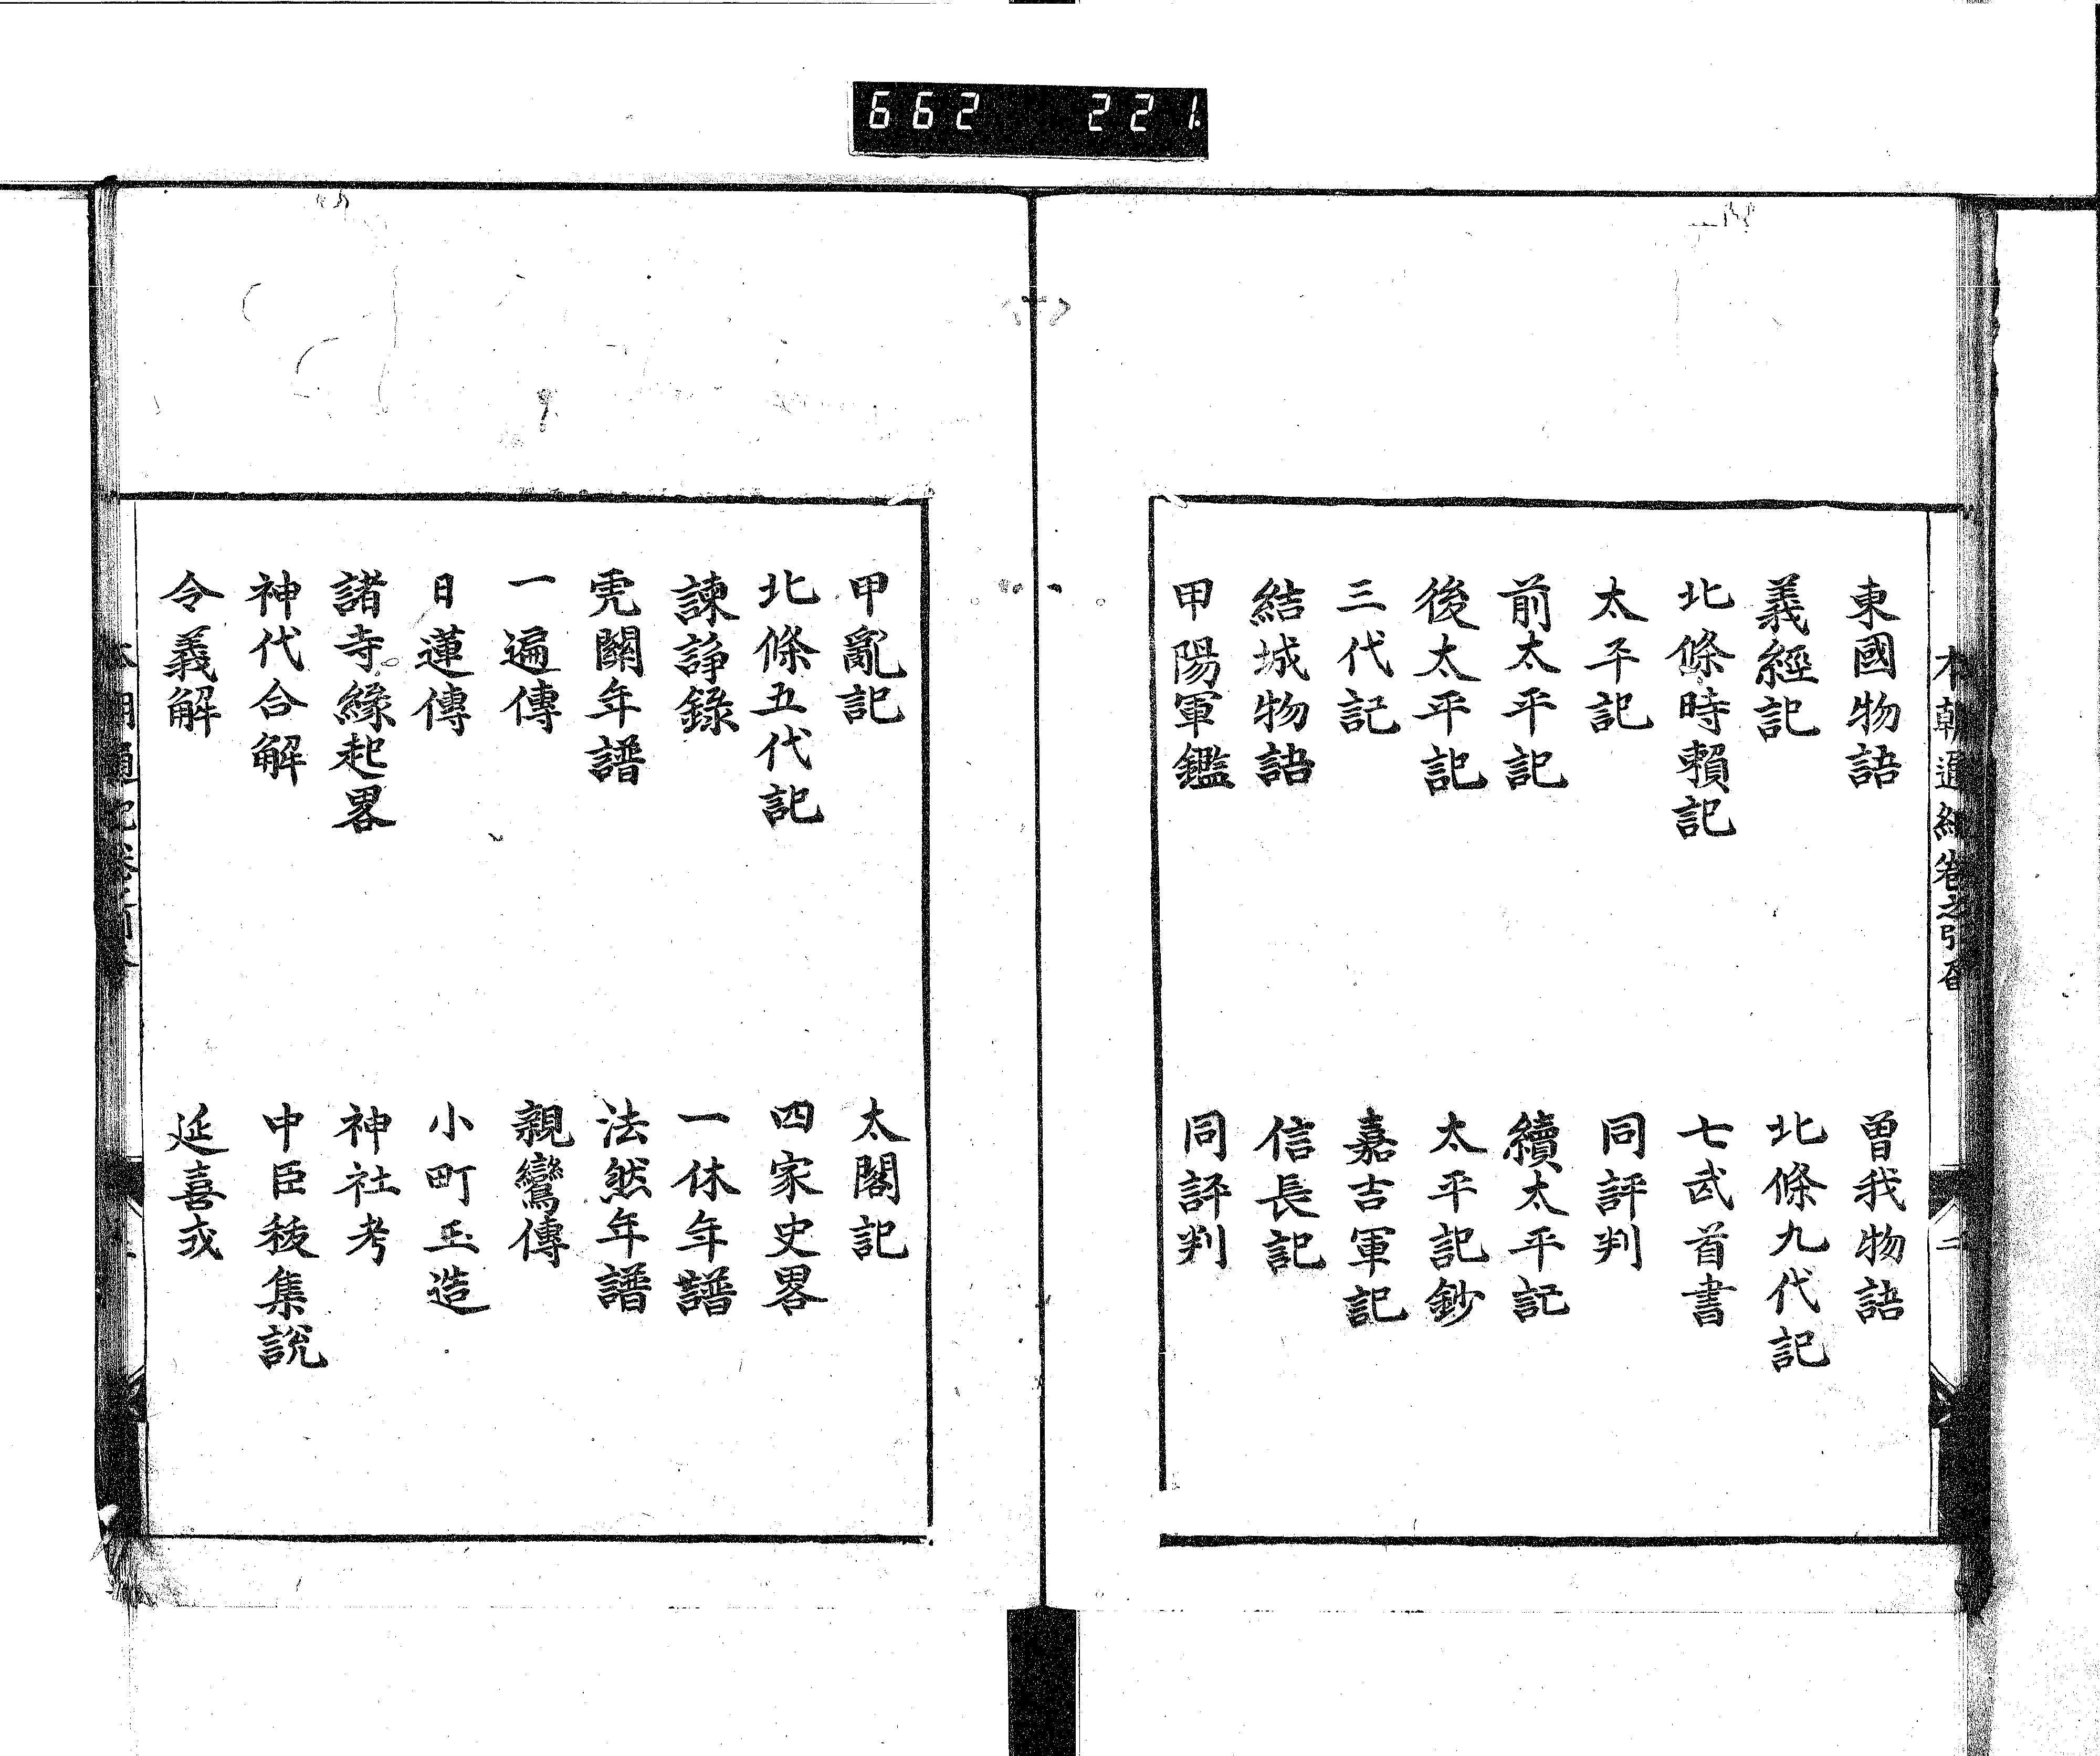 662 221
本朝通紀卷之引書
二
東國物語 曽我物語
義經記 北條九代記
北條時賴記 七武首書
太平記 同評判
前太平記 續太平記
後太平記 太平記鈔
三代記 嘉吉軍記
結城物語 信長記
甲陽軍鑑 同評判
甲亂記 太閤記
北條五代記 四家史畧
諫諍錄 一休年譜
虎關年譜 法然年譜
一遍傳 親鸞傳
日蓮傳 小町玉造
諸寺緣起畧 神社考
神代合解 中臣祓集說
令義解 延喜式